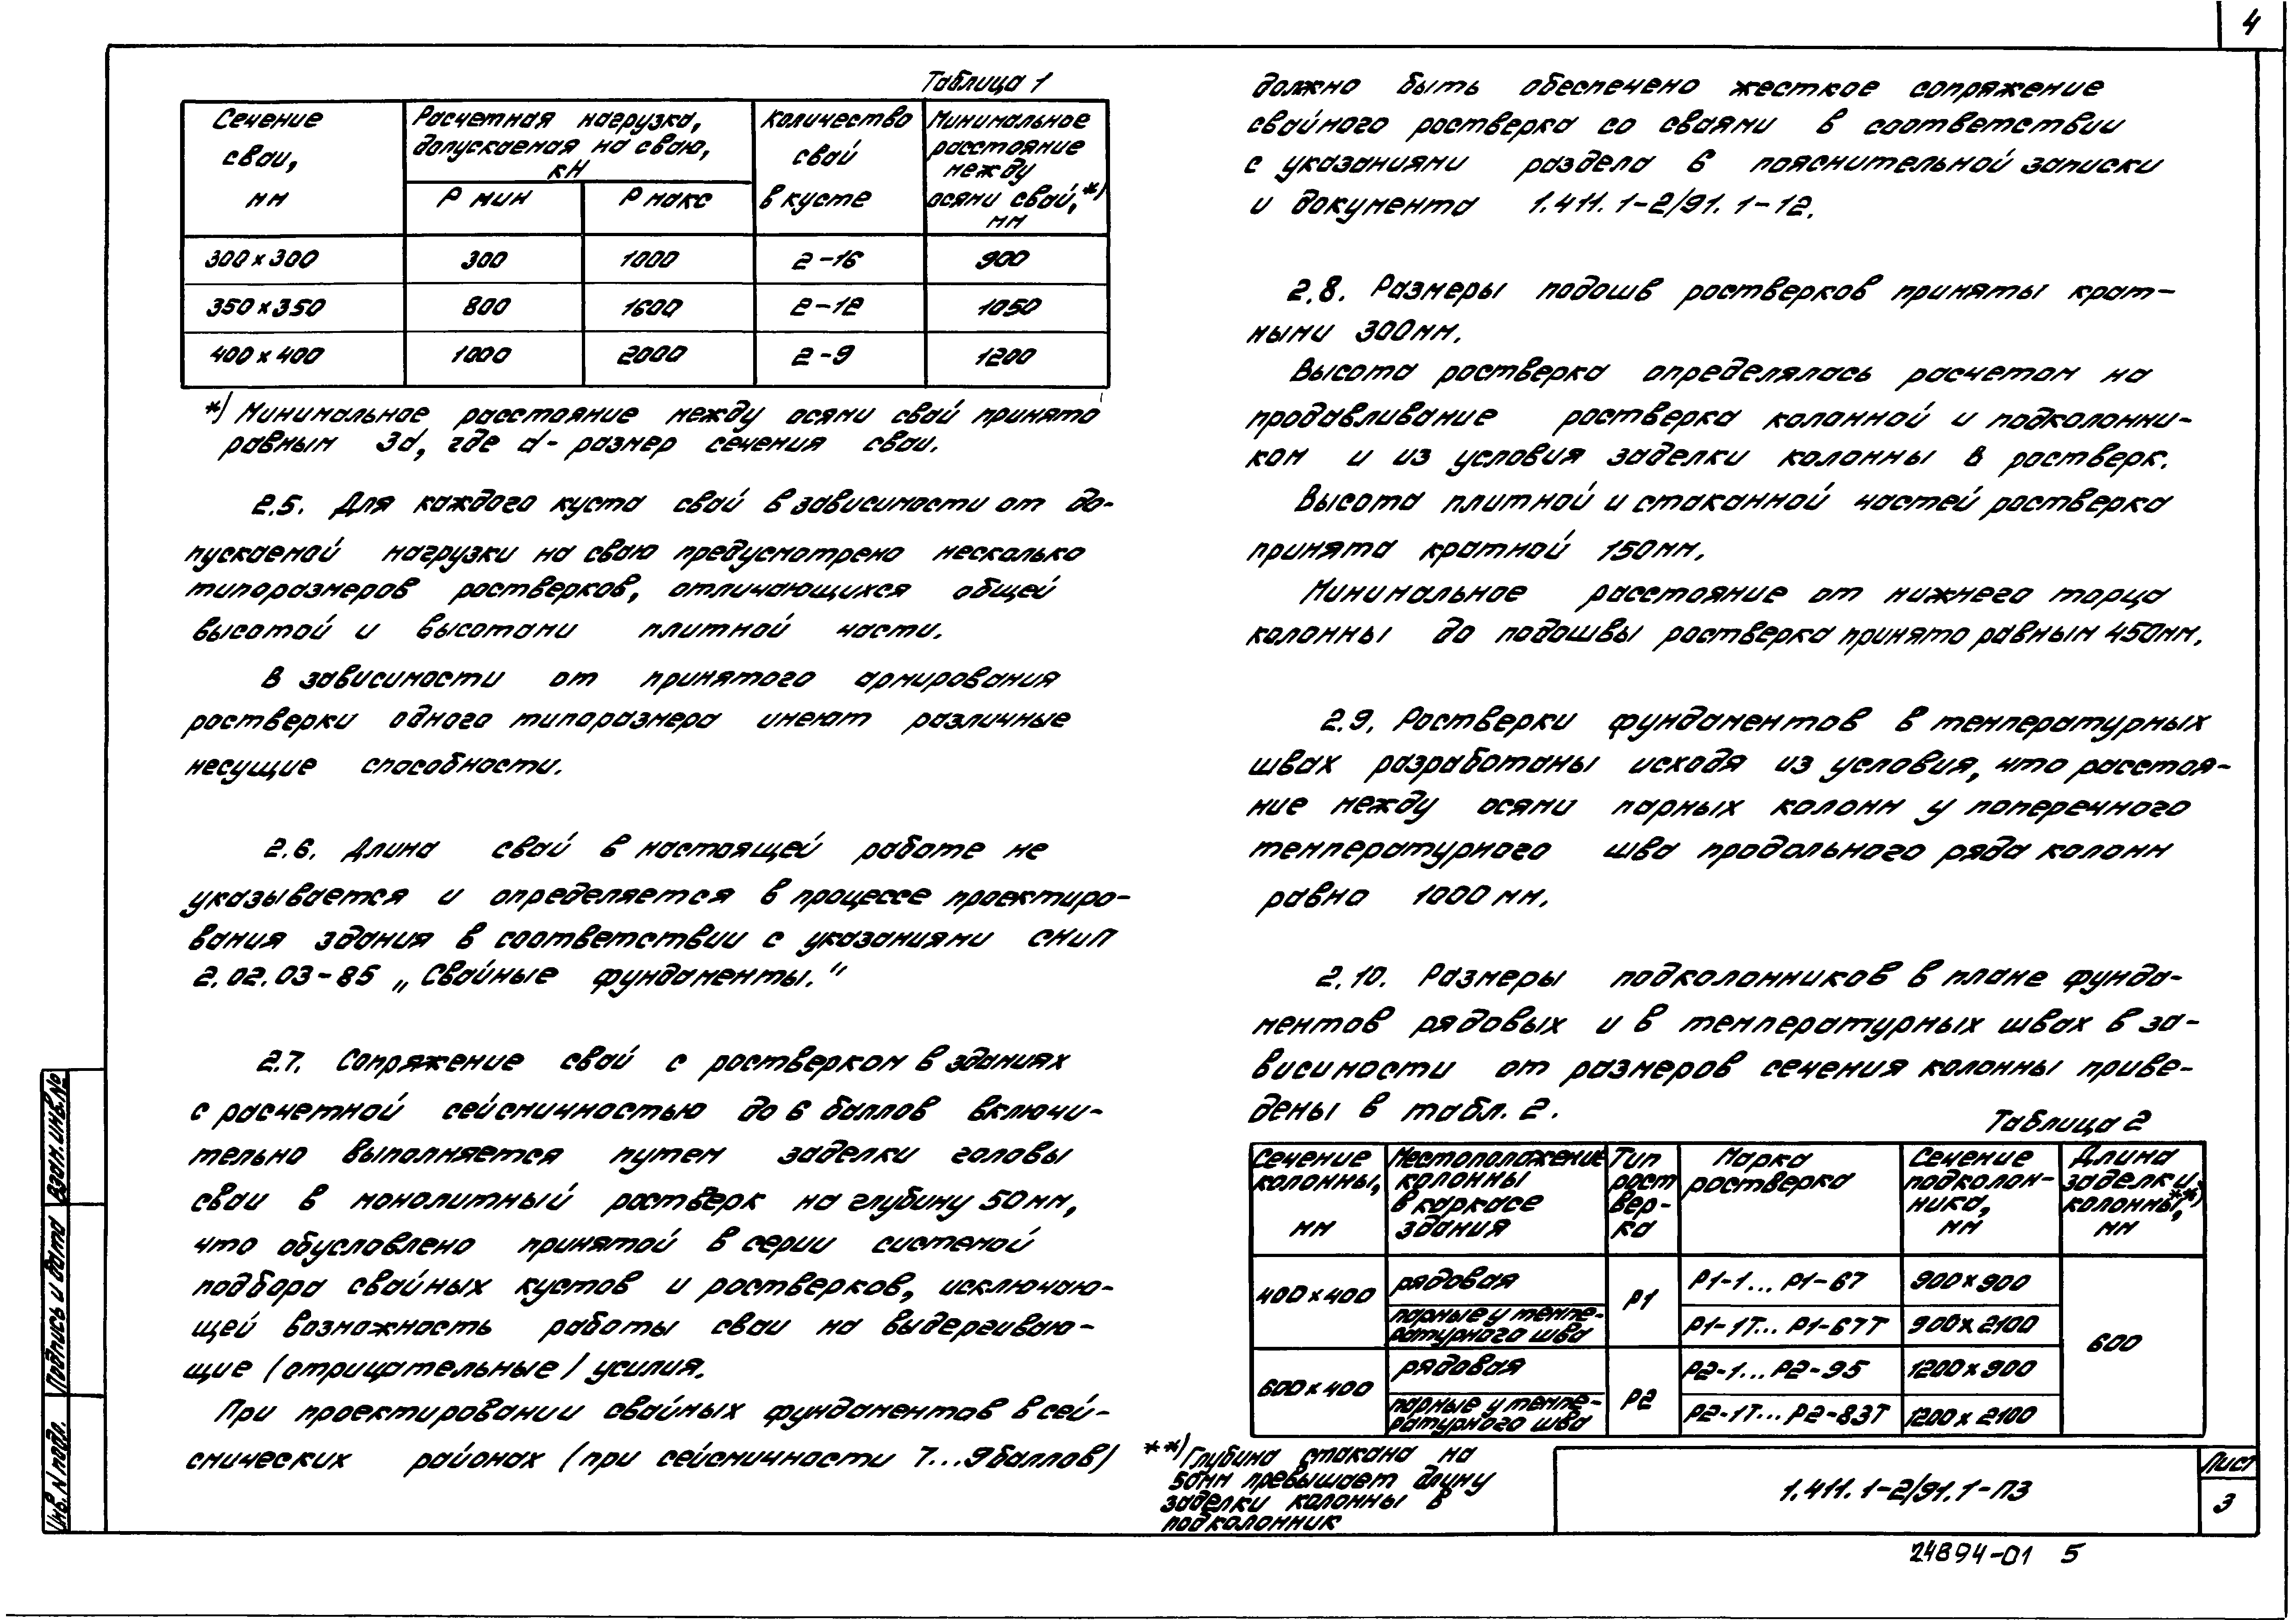 4
Таблица 1
Сечение сваи, мм | Расчетная нагрузка, допускаемая на сваю, кН | Количество свай в кусте | Минимальное расстояние между осями свай,*) мм
Р мин | Р макс
300×300 | 300 | 1000 | 2-16 | 900
350×350 | 800 | 1600 | 2-12 | 1050
400×400 | 1000 | 2000 | 2-9 | 1200
*) Минимальное расстояние между осями свай принято
равным 3d, где d- размер сечения сваи.
2.5. Для каждого куста свай в зависимости от до-
пускаемой нагрузки на сваю предусмотрено несколько
типоразмеров ростверков, отличающихся общей
высотой и высотами плитной части.
В зависимости от принятого армирования
ростверки одного типоразмера имеют различные
несущие способности.
2.6. Длина свай в настоящей работе не
указывается и определяется в процессе проектиро-
вания здания в соответствии с указаниями СНиП
2.02.03-85 „Свайные фундаменты."
2.7. Сопряжение свай с ростверком в зданиях
с расчетной сейсмичностью до 6 баллов включи-
тельно выполняется путем заделки головы
сваи в монолитный ростверк на глубину 50мм,
что обусловлено принятой в серии системой
подбора свайных кустов и ростверков, исключаю-
щей возможность работы сваи на выдергиваю-
щие (отрицательные) усилия.
При проектировании свайных фундаментов в сей-
смических районах (при сейсмичности 7...9 баллов)
должно быть обеспечено жесткое сопряжение
свайного ростверка со сваями в соответствии
с указаниями раздела 6 пояснительной записки
и документа 1.411.1-2/91.1-12.
2.8. Размеры подошв ростверков приняты крат-
ными 300мм.
Высота ростверка определялась расчетом на
продавливание ростверка колонной и подколонни-
ком и из условия заделки колонны в ростверк.
Высота плитной и стаканной частей ростверка
принята кратной 150мм.
Минимальное расстояние от нижнего торца
колонны до подошвы ростверка принято равным 450мм.
2.9. Ростверки фундаментов в температурных
швах разработаны исходя из условия, что расстоя-
ние между осями парных колонн у поперечного
температурного шва продольного ряда колонн
равно 1000 мм.
2.10. Размеры подколонников в плане фунда-
ментов рядовых и в температурных швах в за-
висимости от размеров сечения колонны приве-
дены в табл. 2.
Таблица 2
Сечение колонны, мм | Местоположение колонны в каркасе здания | Тип рост вер- ка | Марка ростверка | Сечение подколон- ника, мм | Длина заделки колонны,**) мм
400×400 | рядовая | Р1 | Р1-1... Р1-67 | 900×900 | 600
парные у темпе- ратурного шва | Р1-1Т... Р1-67Т | 900×2100
600×400 | рядовая | Р2 | Р2-1... Р2-95 | 1200×900
парные у темпе- ратурного шва | Р2-1Т... Р2-83Т | 1200×2100
**) Глубина стакана на
50мм превышает длину
заделки колонны в
подколонник
1.411.1-2/91.1-ПЗ
Лист
3
24894-01 5
Взам.инв.№
Подпись и дата
Инв.N подл.